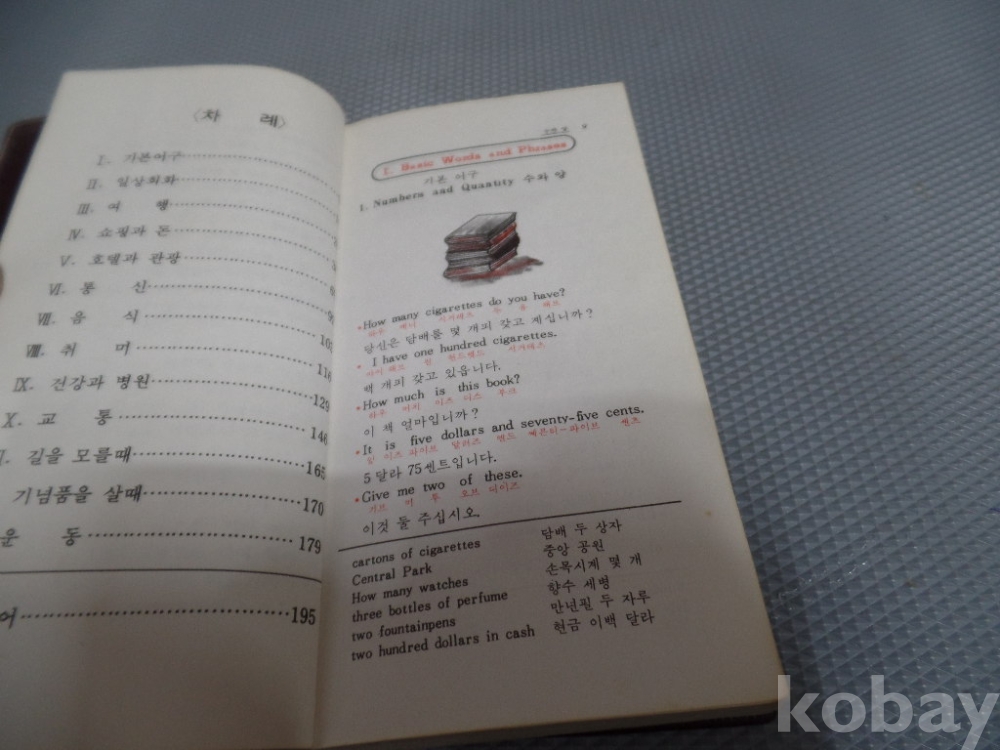 〈차 례〉
Ⅰ. 기본어구
Ⅱ. 일상회화
Ⅲ. 여 행
Ⅳ. 쇼핑과 돈
Ⅴ. 호텔과 관광
Ⅵ. 통 신
Ⅶ. 음 식
Ⅷ. 취 미 116
Ⅸ. 건강과 병원 129
Ⅹ. 교 통 146
길을 모를때 165
기념품을 살때 170
운 동 179
어 195
9
Ⅰ. Basic Words and Phrases
기본 어구
1. Numbers and Quantity 수와 양
*How many cigarettes do you have?
하우 메니 시거레츠 두 유 해브
당신은 담배를 몇 개피 갖고 계십니까?
* I have one hundred cigarettes.
아이 해브 원 헌드레드 시거레츠
백 개피 갖고 있읍니다.
*How much is this book?
하우 머치 이즈 디스 부크
이 책 얼마입니까?
*It is five dollars and seventy-five cents.
잍 이즈 파이브 달러즈 앤드 쎄븐티-파이브 쎈츠
5달라 75쎈트입니다.
*Give me two of these.
기브 미 투 오브 디이즈
이것 둘 주십시오.
cartons of cigarettes 담배 두 상자
Central Park 중앙 공원
How many watches 손목시계 몇 개
three bottles of perfume 향수 세병
two fountainpens 만년필 두 자루
two hundred dollars in cash 현금 이백 달라
kobay